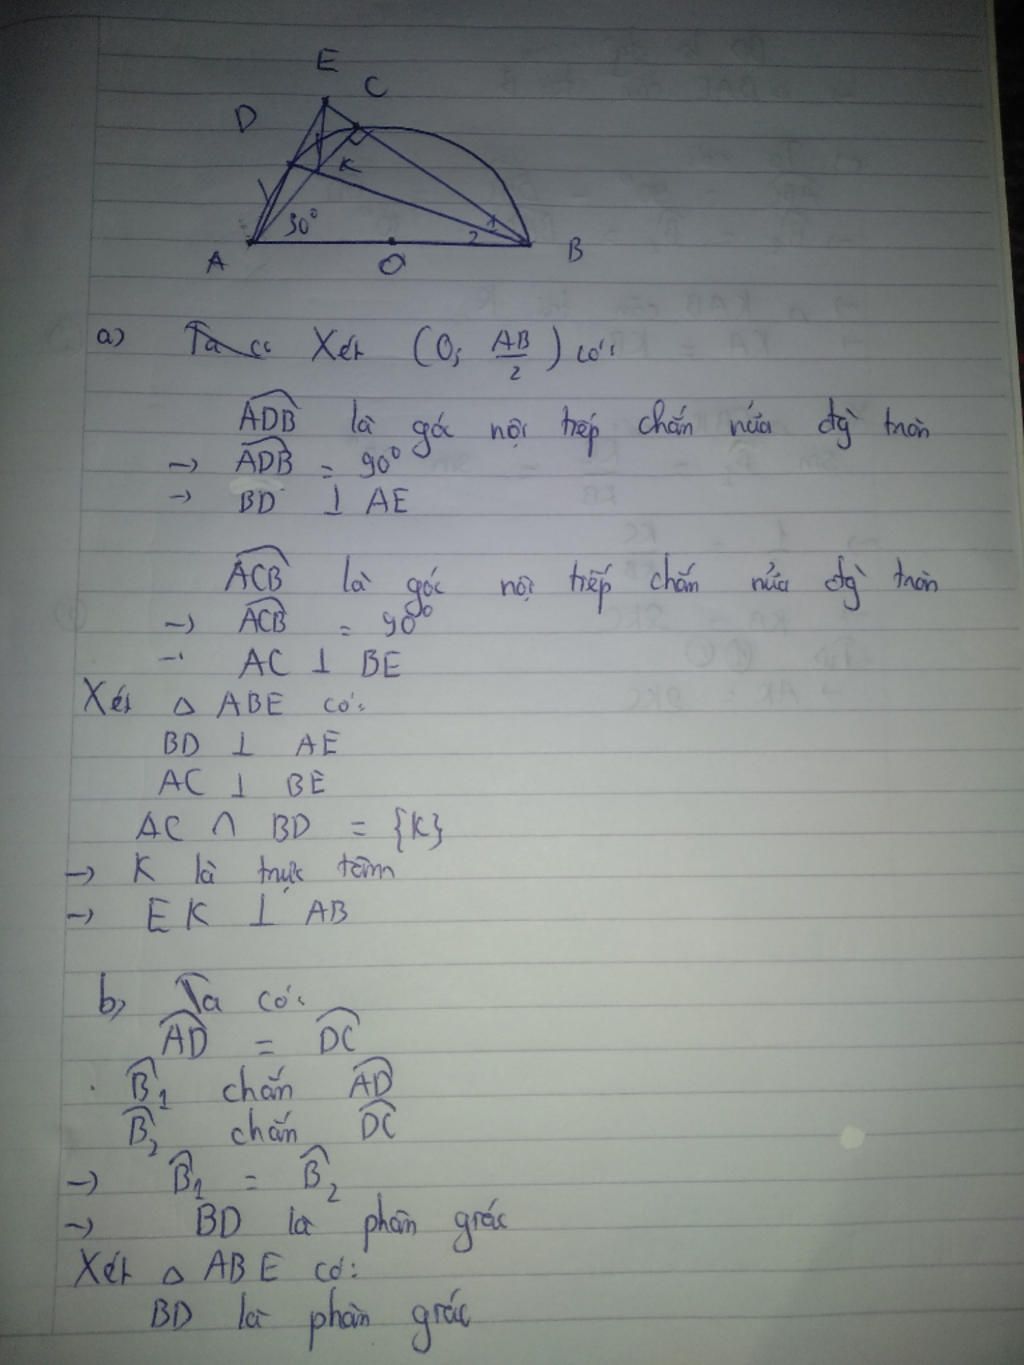 E
C
D
K
30°
1
2
A
O
B
a) Ta có Xét (O; AB/2) có:
ADB là góc nội tiếp chắn nửa đg tròn
→ ADB = 90°
→ BD ⊥ AE
ACB là góc nội tiếp chắn nửa đg tròn
→ ACB = 90°
→ AC ⊥ BE
Xét △ ABE có:
BD ⊥ AE
AC ⊥ BE
AC ∩ BD = {K}
→ K là trực tâm
→ EK ⊥ AB
b, Ta có:
AD = DC
B1 chắn AD
B2 chắn DC
→ B1 = B2
→ BD là phân giác
Xét △ ABE có:
BD là phân giác